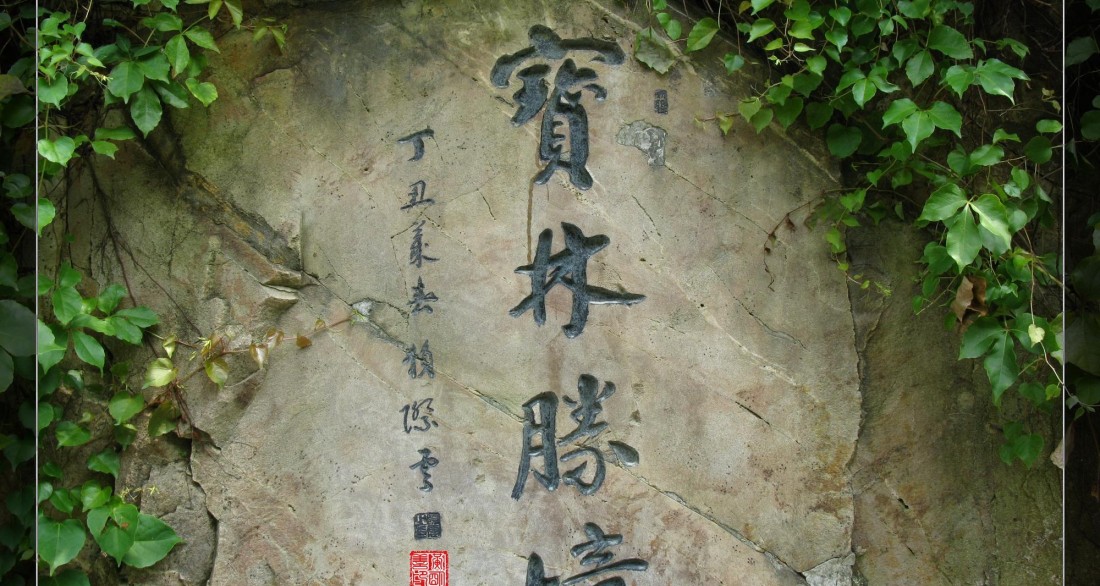 寶林勝境
丁丑春賴際雲